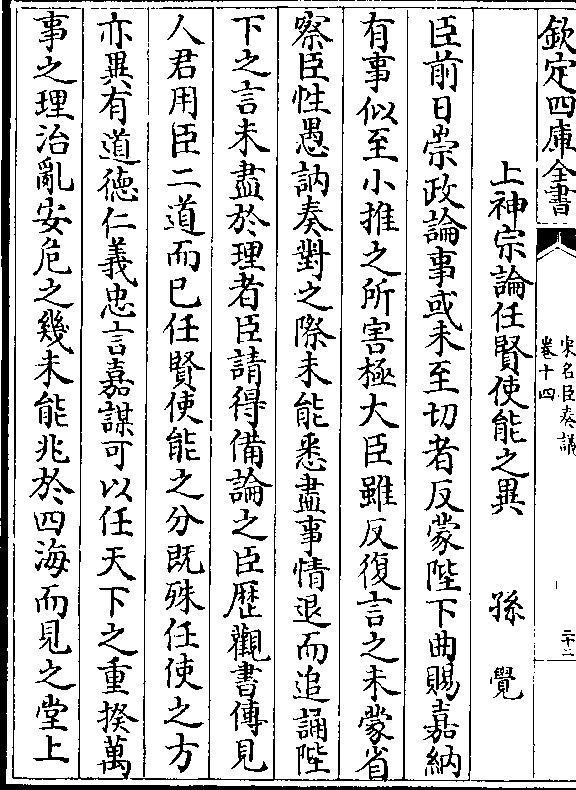 欽定四庫全書
宋名臣奏議
卷十四
二十二
上神宗論任賢使能之異 孫覺
臣前日崇政論事或未至切者反蒙陛下曲賜嘉納
有事似至小推之所害極大臣雖反復言之未蒙省
察臣性愚訥奏對之際未能悉盡事情退而追誦陛
下之言未盡於理者臣請得備論之臣歷觀書傳見
人君用臣二道而已任賢使能之分既殊任使之方
亦異有道德仁義忠言嘉謀可以任天下之重揆萬
事之理治亂安危之幾未能兆於四海而見之堂上